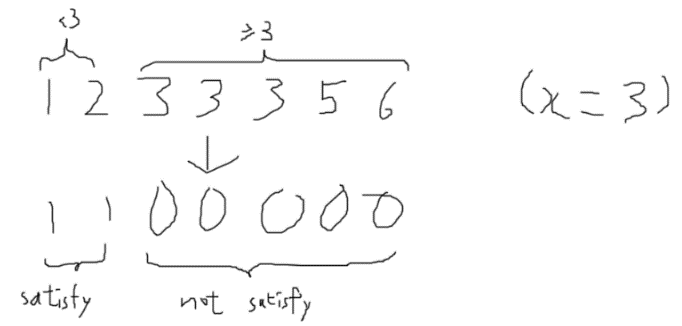 <3 ≥3
1 2 3 3 3 5 6 (x = 3)
1 1 0 0 0 0 0
satisfy not satisfy